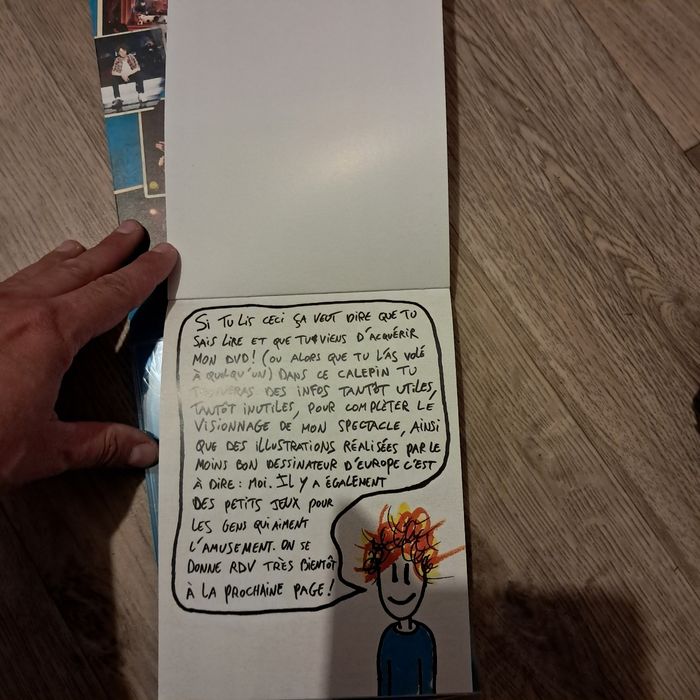 SI TU LIS CECI ÇA VEUT DIRE QUE TU
SAIS LIRE ET QUE TU VIENS D'ACQUÉRIR
MON DVD! (OU ALORS QUE TU L'AS VOLÉ
À QUELQU'UN) DANS CE CALEPIN TU
TROUVERAS DES INFOS TANTÔT UTILES,
TANTÔT INUTILES, POUR COMPLÈTER LE
VISIONNAGE DE MON SPECTACLE, AINSI
QUE DES ILLUSTRATIONS RÉALISÉES PAR LE
MOINS BON DESSINATEUR D'EUROPE C'EST
À DIRE : MOI. IL Y A ÉGALEMENT
DES PETITS JEUX POUR
LES GENS QUI AIMENT
L'AMUSEMENT. ON SE
DONNE RDV TRÈS BIENTÔT
À LA PROCHAINE PAGE!